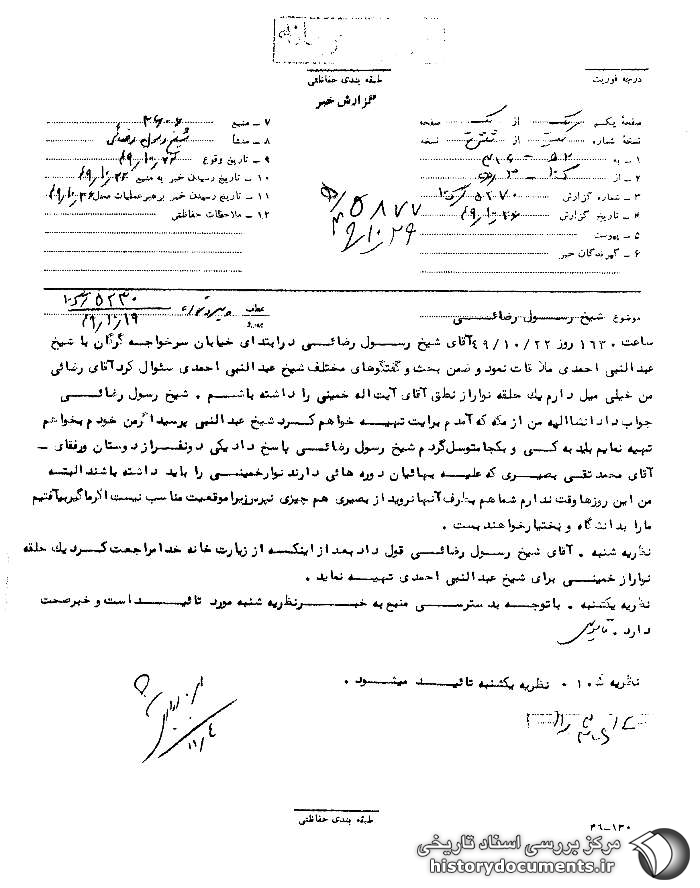 درجه فوریت
طبقه بندی حفاظتی
گزارش خبر
صفحه یک از یک صفحه
نسخه شماره از نسخه
۱ ـ به
۲ ـ از
۳ ـ شماره گزارش ۵۲۷۰
۴ ـ تاریخ گزارش ۴۹/۱۰/۲۶
۵ ـ پیوست
۶ ـ گیرندگان خبر
۷ ـ منبع
۸ ـ منشأ شیخ رسول رضائی
۹ ـ تاریخ وقوع ۴۹/۱۰/۲۲
۱۰ ـ تاریخ رسیدن خبر به منبع
۱۱ ـ تاریخ رسیدن خبر برهبر عملیات محل ۴۹/۱۰/۲۶
۱۲ ـ ملاحظات حفاظتی
۵۸۷۷
۱۰/۲۹
موضوع شیخ رسول رضائی
عطف
۵۲۳۰
۴۹/۱۰/۱۹
ساعت ۱۶۳۰ روز ۴۹/۱۰/۲۲ آقای شیخ رسول رضائی در ابتدای خیابان سرخواجه گرگان با شیخ
عبدالنبی احمدی ملاقات نمود و ضمن بحث و گفتگوهای مختلف شیخ عبدالنبی احمدی سئوال کرد آقای رضائی
من خیلی میل دارم یك حلقه نوار از نطق آقای آیت اله خمینی را داشته باشم . شیخ رسول رضائی
جواب داد انشاالیه من از مکه که آمدم برایت تهیه خواهم کرد شیخ عبدالنبی پرسید اگر من خودم بخواهم
تهیه نمایم باید به کی و بکجا متوسل گردم شیخ رسول رضائی پاسخ داد یکی دو نفر از دوستان و رفقای ـ
آقای محمد تقی بصیری که علیه بهائیان دوره هائی دارند نوار خمینی را باید داشته باشند البته
من این روزها وقت ندارم شما هم بطرف آنها نروید از بصیری هم چیزی نپرس زیرا موقعیت مناسب نیست اگر ما گیر بیافتیم
ما را بدانشگاه و بختیار خواهند بست .
نظریه شنبه . آقای شیخ رسول رضائی قول داد بعد از اینکه از زیارت خانه خدا مراجعت کرد یك حلقه
نوار از خمینی برای شیخ عبدالنبی احمدی تهیه نماید .
نظریه یکشنبه . با توجه به دسترسی منبع به خبر نظریه شنبه مورد تائید است و خبر صحت
دارد .
نظریه ۱۰ ه . نظریه یکشنبه تائید میشود .
۱۱/۴
طبقه بندی حفاظتی
۴۶-۱۳۰
مرکز بررسی اسناد تاریخی
historydocuments.ir